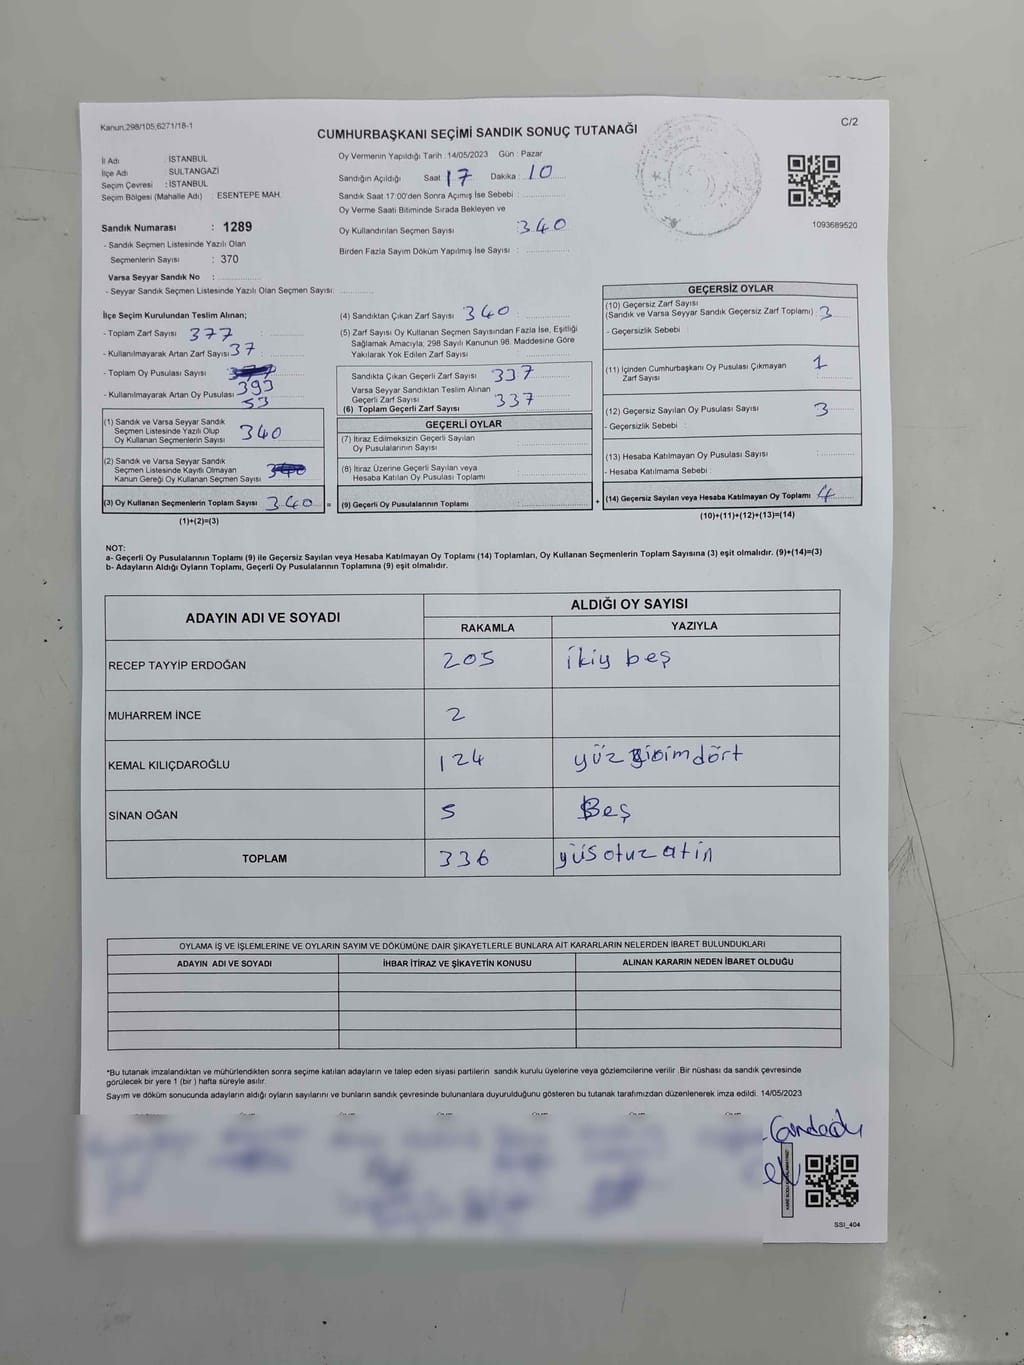 Kanun:298/105;6271/18-1
C/2
CUMHURBAŞKANI SEÇİMİ SANDIK SONUÇ TUTANAĞI
İl Adı : İSTANBUL
İlçe Adı : SULTANGAZİ
Seçim Çevresi : İSTANBUL
Seçim Bölgesi (Mahalle Adı) : ESENTEPE MAH.
Sandık Numarası : 1289
- Sandık Seçmen Listesinde Yazılı Olan
Seçmenlerin Sayısı : 370
Varsa Seyyar Sandık No :
- Seyyar Sandık Seçmen Listesinde Yazılı Olan Seçmen Sayısı:
Oy Vermenin Yapıldığı Tarih :14/05/2023 Gün : Pazar
Sandığın Açıldığı Saat 17 Dakika : 10
Sandık Saat 17:00'den Sonra Açımış İse Sebebi :
Oy Verme Saati Bitiminde Sırada Bekleyen ve
Oy Kullandırılan Seçmen Sayısı : 340
Birden Fazla Sayım Döküm Yapılmış İse Sayısı :
1093689520
İlçe Seçim Kurulundan Teslim Alınan;
- Toplam Zarf Sayısı : 377
- Kullanılmayarak Artan Zarf Sayısı : 37
- Toplam Oy Pusulası Sayısı : 393
- Kullanılmayarak Artan Oy Pusulası 53
(1) Sandık ve Varsa Seyyar Sandık
Seçmen Listesinde Yazılı Olup
Oy Kullanan Seçmenlerin Sayısı 340
(2) Sandık ve Varsa Seyyar Sandık
Seçmen Listesinde Kayıtlı Olmayan
Kanun Gereği Oy Kullanan Seçmen Sayısı
(3) Oy Kullanan Seçmenlerin Toplam Sayısı 340 =
(1)+(2)=(3)
(4) Sandıktan Çıkan Zarf Sayısı 340
(5) Zarf Sayısı Oy Kullanan Seçmen Sayısından Fazla İse, Eşitliği
Sağlamak Amacıyla; 298 Sayılı Kanunun 98. Maddesine Göre
Yakılarak Yok Edilen Zarf Sayısı
Sandıkta Çıkan Geçerli Zarf Sayısı 337
Varsa Seyyar Sandıktan Teslim Alınan
Geçerli Zarf Sayısı
(6) Toplam Geçerli Zarf Sayısı 337
GEÇERLİ OYLAR
(7) İtiraz Edilmeksizin Geçerli Sayılan
Oy Pusulalarının Sayısı
(8) İtiraz Üzerine Geçerli Sayılan veya
Hesaba Katılan Oy Pusulası Toplamı
(9) Geçerli Oy Pusulalarının Toplamı +
GEÇERSİZ OYLAR
(10) Geçersiz Zarf Sayısı
(Sandık ve Varsa Seyyar Sandık Geçersiz Zarf Toplamı) 3
- Geçersizlik Sebebi :
(11) İçinden Cumhurbaşkanı Oy Pusulası Çıkmayan
Zarf Sayısı 1
(12) Geçersiz Sayılan Oy Pusulası Sayısı 3
- Geçersizlik Sebebi :
(13) Hesaba Katılmayan Oy Pusulası Sayısı
- Hesaba Katılmama Sebebi :
(14) Geçersiz Sayılan veya Hesaba Katılmayan Oy Toplamı 4
(10)+(11)+(12)+(13)=(14)
NOT:
a- Geçerli Oy Pusulalarının Toplamı (9) ile Geçersiz Sayılan veya Hesaba Katılmayan Oy Toplamı (14) Toplamları, Oy Kullanan Seçmenlerin Toplam Sayısına (3) eşit olmalıdır. (9)+(14)=(3)
b- Adayların Aldığı Oyların Toplamı, Geçerli Oy Pusulalarının Toplamına (9) eşit olmalıdır.
ADAYIN ADI VE SOYADI
ALDIĞI OY SAYISI
RAKAMLA YAZIYLA
RECEP TAYYİP ERDOĞAN 205 ikiy beş
MUHARREM İNCE 2
KEMAL KILIÇDAROĞLU 124 yüz yirimdört
SİNAN OĞAN 5 Beş
TOPLAM 336 yüs otuz atin
OYLAMA İŞ VE İŞLEMLERİNE VE OYLARIN SAYIM VE DÖKÜMÜNE DAİR ŞİKAYETLERLE BUNLARA AİT KARARLARIN NELERDEN İBARET BULUNDUKLARI
ADAYIN ADI VE SOYADI İHBAR İTİRAZ VE ŞİKAYETİN KONUSU ALINAN KARARIN NEDEN İBARET OLDUĞU
*Bu tutanak imzalandıktan ve mühürlendikten sonra seçime katılan adayların ve talep eden siyasi partilerin sandık kurulu üyelerine veya gözlemcilerine verilir .Bir nüshası da sandık çevresinde
görülecek bir yere 1 (bir ) hafta süreyle asılır.
Sayım ve döküm sonucunda adayların aldığı oyların sayılarını ve bunların sandık çevresinde bulunanlara duyurulduğunu gösteren bu tutanak tarafımızdan düzenlenerek imza edildi. 14/05/2023
SSI_404